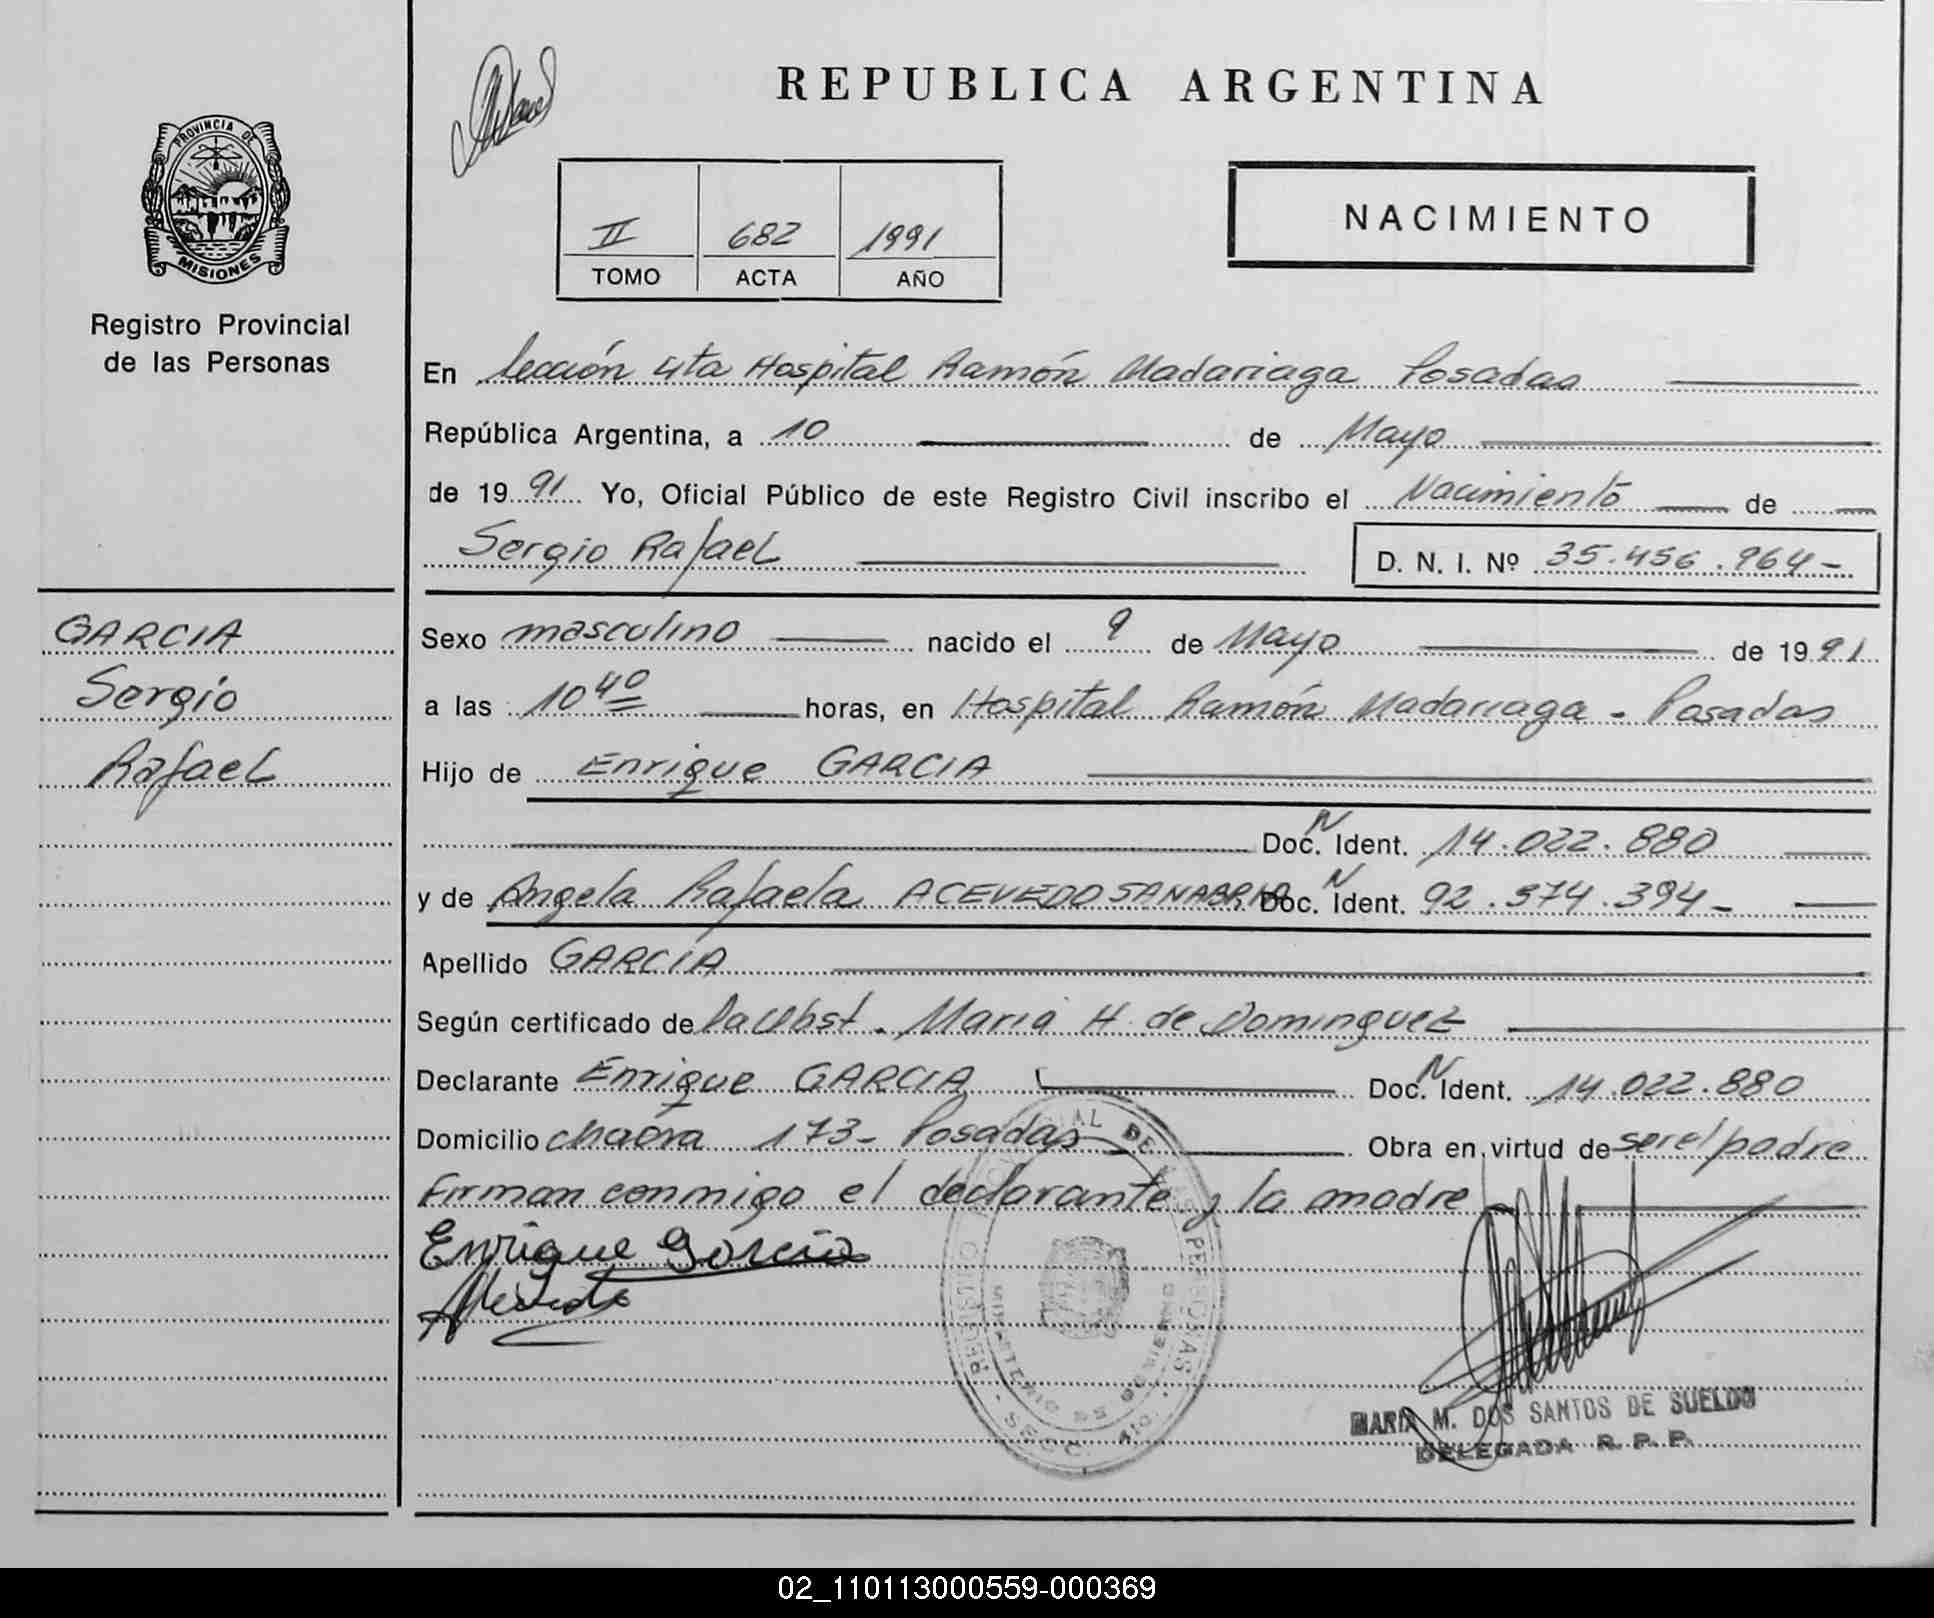 REPUBLICA ARGENTINA
PROVINCIA DE
MISIONES
Registro Provincial
de las Personas
II 682 1991
TOMO ACTA AÑO
NACIMIENTO
En Sección 4ta Hospital Ramón Madariaga Posadas
República Argentina, a 10 de Mayo
de 1991 Yo, Oficial Público de este Registro Civil inscribo el Nacimiento de
Sergio Rafael
D. N. I. Nº 35.456.964-
GARCIA
Sergio
Rafael
Sexo masculino nacido el 9 de Mayo de 1991
a las 10 40 horas, en Hospital Ramón Madariaga - Posadas
Hijo de Enrique GARCIA
Doc. N Ident. 14.022.880
y de Angela Rafaela ACEVEDO SANABRIA Doc. N Ident. 92.574.394-
Apellido GARCIA
Según certificado de la Obst. Maria H. de Dominguez
Declarante Enrique GARCIA Doc. N Ident. 14.022.880
Domicilio chacra 173- Posadas Obra en virtud de ser el padre
Firman conmigo el declarante y la madre
Enrique Garcia
REGISTRO PROVINCIAL DE LAS PERSONAS
MINISTERIO DE GOBIERNO
MARIA M. DOS SANTOS DE SUELDO
DELEGADA R. P. P.
02_110113000559-000369